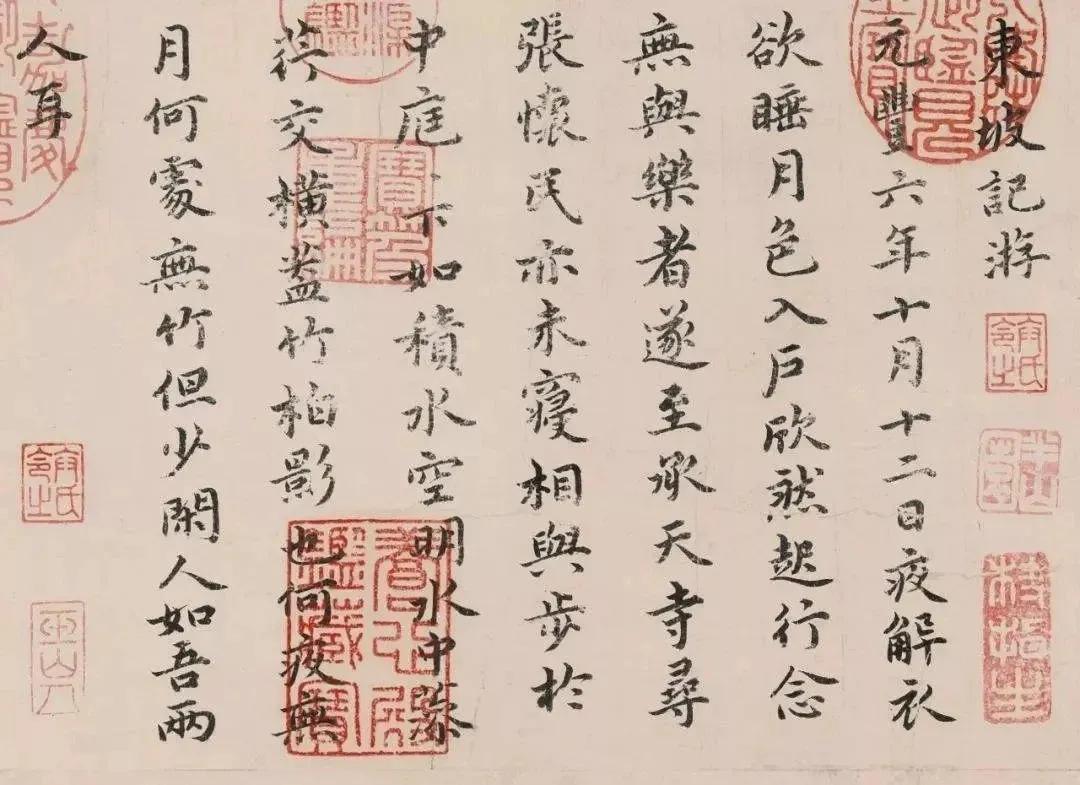 東坡記游
元豐六年十月十二日夜解衣
欲睡月色入戶欣然起行念
無與樂者遂至承天寺尋
張懷民亦未寢相與步於
中庭〻下如積水空明水中藻
荇交橫蓋竹柏影也何夜無
月何處無竹但少閑人如吾兩
人耳
寶笈
重編
養心殿
鑑藏寶